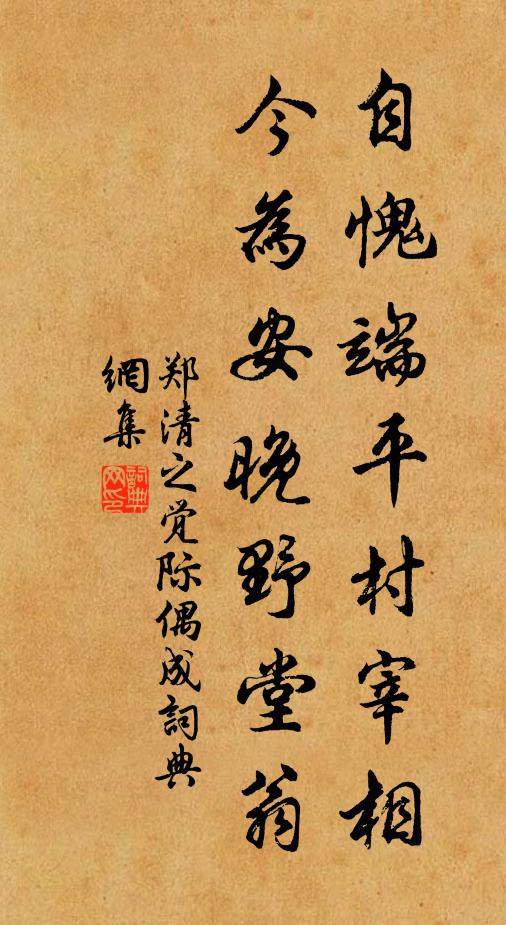 自愧端平村宰相
今為安晚野堂翁
郑清之觉际偶成詞典
網集
詞典網印